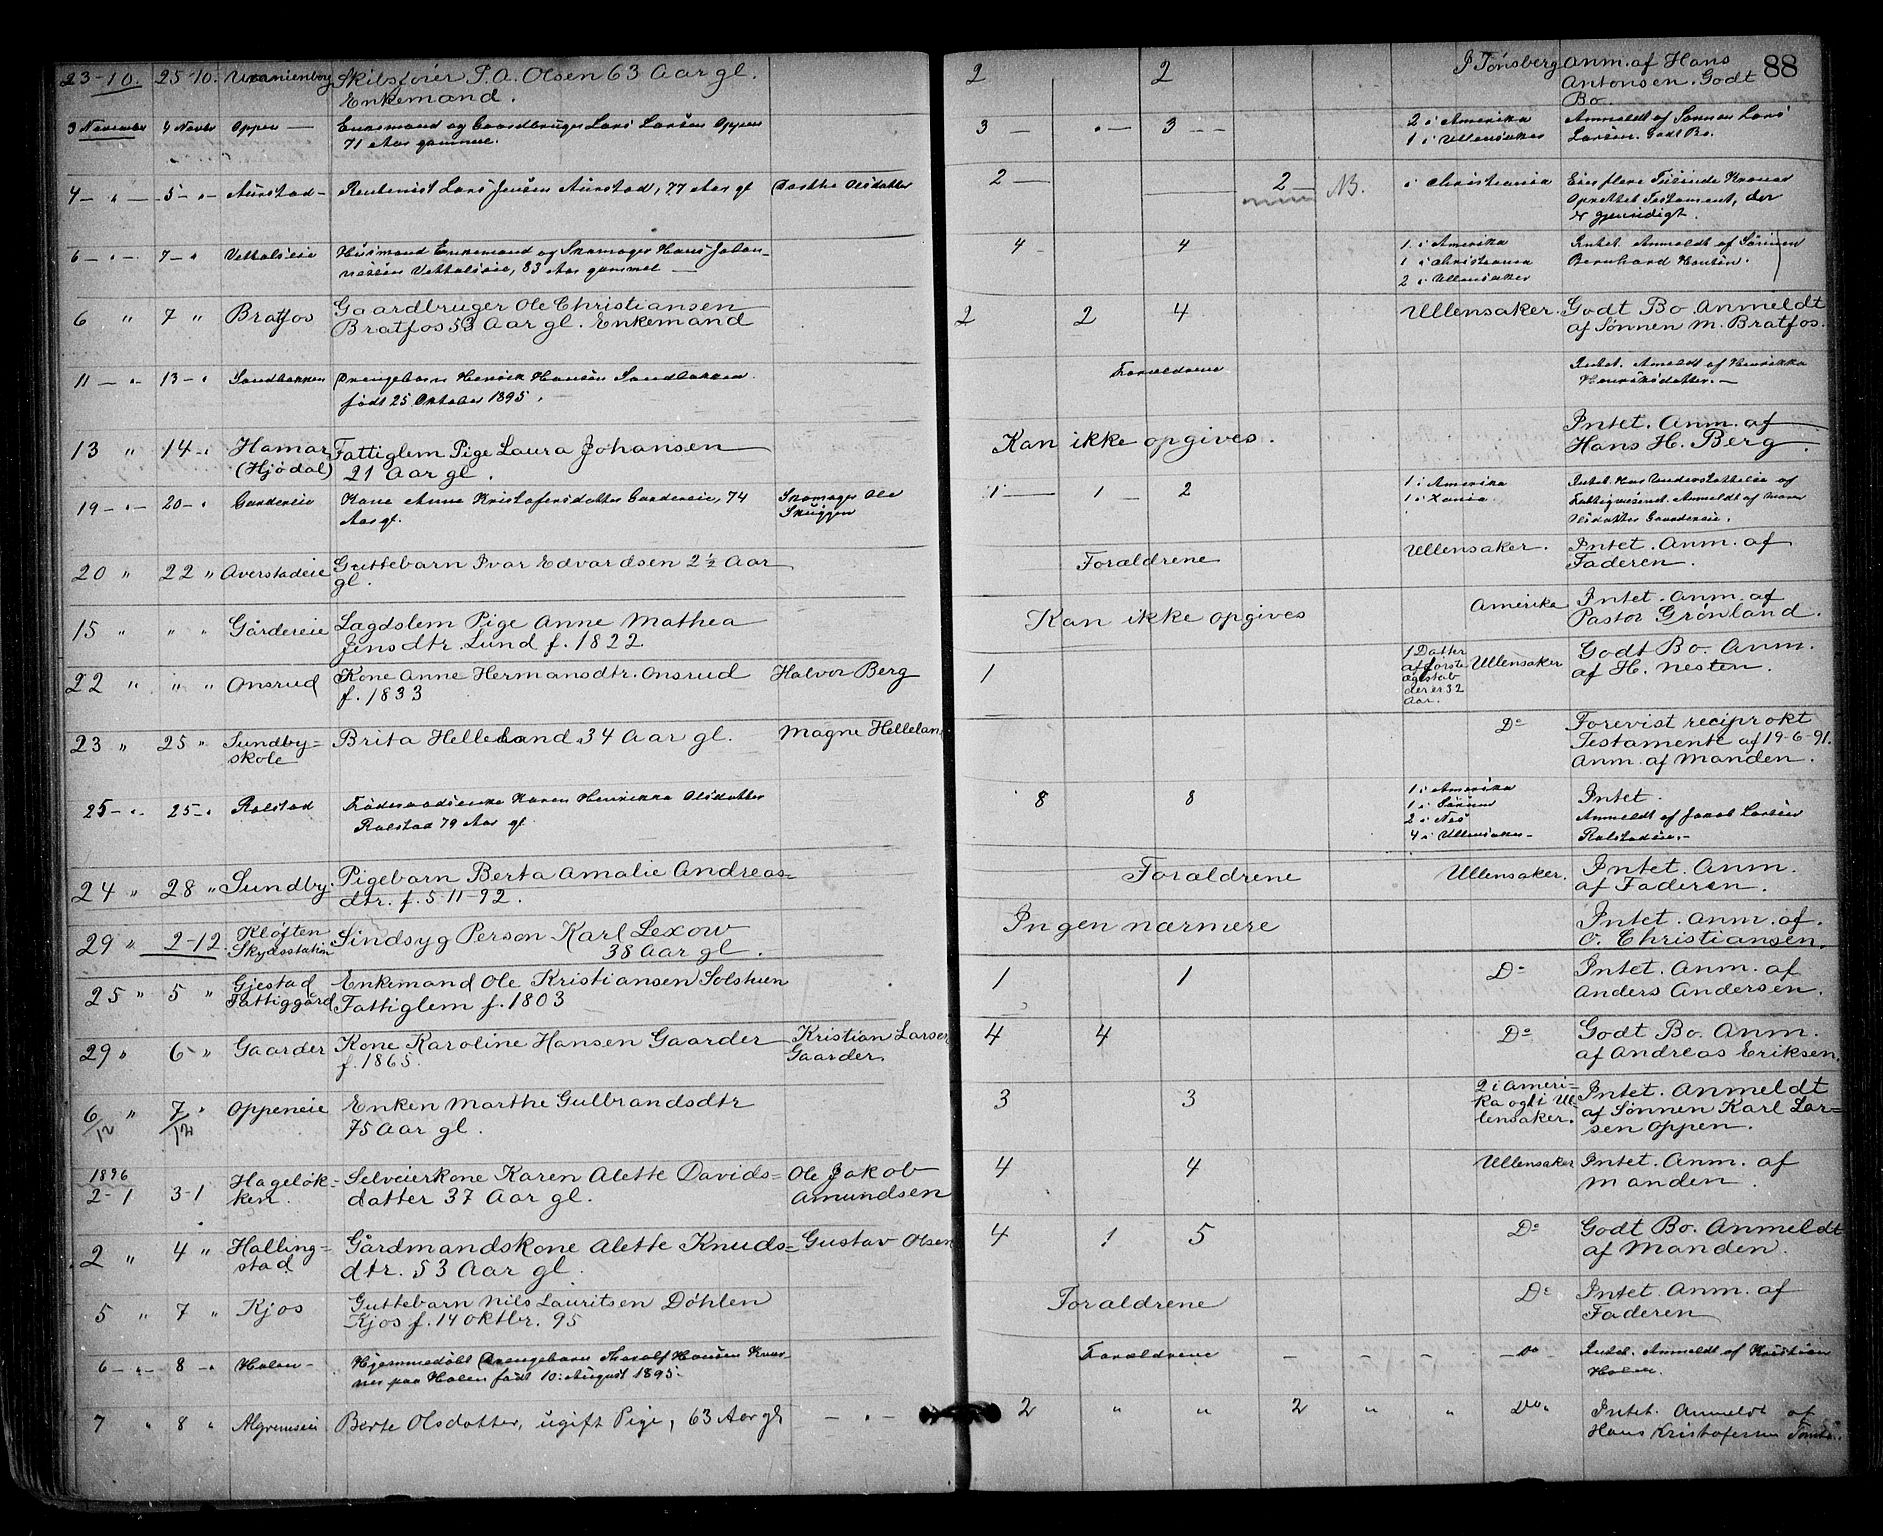 88
23-10. 25-10. Uranienborg Skibsfører P.A. Olsen 63 Aar gl. 2 2 I Tønsberg Anm. af Hans
Enkemand. Antonsen. Godt
Bo.
3 November 4 Novbr Oppen — Enkemand og Gaardbruger Lars Larsen Oppen 3 — 3 — 2 i Amerika Anmeldt af Sønnen Lars
71 Aar gammel. 1 i Ullensaker Larsen. Godt Bo.
4 — " — 5 — " Aurstad — Rentenist Lars Jensen Aurstad, 77 Aar gl Dorthe Olsdatter 2 — 2 — NB. i Christiania Eier flere Tusinde Kroner
Oprettet Testament, der
er gjensidigt.
6 — " — 7 — " Vethalseie Husmand Enkemand og Skomager Hans Johan- 4 — 4 1 i Amerika Intet. Anmeldt af Sønnen
nessen Vethalseie, 83 Aar gammel — 1 i Christiania Bernhard Hansen.
2 i Ullensaker
6 " 7 " Bratfos Gaardbruger Ole Christiansen 2 2 4 Ullensaker. Godt Bo Anmeldt
Bratfos 53 Aar gl. Enkemand af Sønnen M. Bratfos.
11 — " 13 — " Sandbakken Drengebarn Henrik Hansen Sandbakken. Forældrene Intet. Anmeldt af Henrikka
født 25 Oktober 1895. Henriksdatter. —
13 " 14 " Hamar Fattiglem Pige Laura Johansen Kan ikke opgives. Intet. Anm. af
(Hjødal) 21 Aar gl. Hans H. Berg.
19 — " 20 — " Gardereie Kone Anne Kristofersdatter Gardereie, 74 Skomager Ole 1 — 1 — 2 1 i Amerika Intet. Har Understøttelse af
Aar gl. Skuggen 1 i Xania Fattigvæsenet. Anmeldt af Maren
Olsdatter Gaardereie.
20 " 22 " Averstadeie Guttebarn Ivar Edvardsen 2½ Aar Forældrene Ullensaker. Intet. Anm. af
gl. Faderen.
15 " " " Gårdereie Lægdslem Pige Anne Mathea Kan ikke opgives Amerika Intet. Anm. af
Jensdtr. Lund f. 1822 Pastor Grønland.
22 " " " Onsrud Kone Anne Hermansdtr. Onsrud Halvor Berg 1 1 Datter af første ægteskab der er 32 Aar. Ullensaker Godt Bo. Anm.
f. 1833 af H. Nesten.
23 " 25 " Sundby= Brita Helleland 34 Aar gl. Magne Helleland Do Forevist reciprokt
skole Testamente af 19-6-91.
Anm. af Manden.
25 — " 25 — " Ralstad Føderaadsenke Karen Henrikka Olsdatter 8 8 1 i Amerika Intet.
Ralstad 79 Aar gl. 1 i Sørum Anmeldt af Jakob Larsen
2 i Nes Ralstadeie. —
4 i Ullensaker
24 " 28 " Sundby. Pigebarn Berta Amalie Andreas= Forældrene Ullensaker. Intet. Anm.
dtr. f. 5-11-92. af Faderen.
29 " 2-12 Kløften Sindsyg Person Karl Lexow Ingen nærmere Intet. Anm. af
Skydsstation 38 Aar gl. O. Christiansen.
25 " 5 " Gjestad Enkemand Ole Kristiansen Solstuen 1 1 Do Intet. Anm. af
Fattiggård Fattiglem f. 1803 Anders Andersen.
29 " 6 " Gaarder Kone Karoline Hansen Gaarder Kristian Larsen 4 4 Do Godt Bo. Anm.
f. 1865. Gaarder. af Andreas Eriksen.
6/12 " 7/12 " Oppeneie Enken Marthe Gulbrandsdtr 3 3 2 i Ameri- Intet. Anmeldt
75 Aar gl. ka og 1 i Ul- af Sønnen Karl Lar=
lensaker. sen Oppen.
1896
2-1 3-1 Hageløk- Selveierkone Karen Alette Davids= Ole Jakob 4 4 Ullensaker Intet. Anm. af
ken. datter 37 Aar gl. Amundsen Manden.
2 " 4 " Halling= Gårdmandskone Alette Knuds= Gustav Olsen 4 1 5 Do Godt Bo. Anmeldt
stad dtr. 53 Aar gl. af Manden.
5 " 7 " Kjos Guttebarn Nils Lauritsen Døhlen Forældrene Do Intet. Anm. af
Kjos f. 14 oktbr. 95 Faderen
6 — " — 8 — " Holen — Hjemmedøbt Drengebarn Thoralf Hansen Forældrene — — — — Do Intet. Anmeldt af Kristian
paa Holen født 10. August 1895. Holen.
7 " 8 " Algrimseie Berte Olsdatter, ugift Pige, 63 Aar gl — " — 2 " " 2 " " Do. Intet. Anmeldt af
Hans Kristofersen